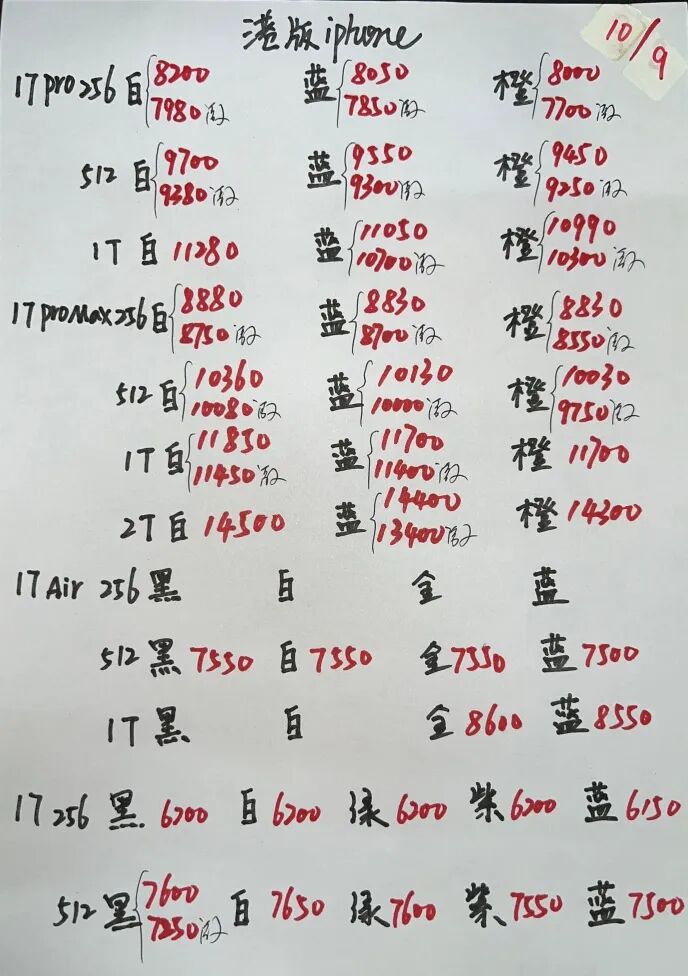 港版iphone 10/9
17pro256白 8200 蓝 8050 橙 8000
7980激 7850激 7700激
512白 9700 蓝 9550 橙 9450
9380激 9300激 9250激
1T白 11280 蓝 11050 橙 10990
10700激 10300激
17proMax256白 8880 蓝 8830 橙 8830
8750激 8700激 8550激
512白 10360 蓝 10130 橙 10030
10080激 10000激 9750激
1T白 11850 蓝 11700 橙 11700
11450激 11400激
2T白 14500 蓝 14400 橙 14300
13400激
17Air 256黑 白 金 蓝
512黑 7550 白 7550 金 7550 蓝 7500
1T黑 白 金 8600 蓝 8550
17 256 黑 6200 白 6200 绿 6200 紫 6200 蓝 6150
512黑 7600 白 7650 绿 7600 紫 7550 蓝 7500
7250激